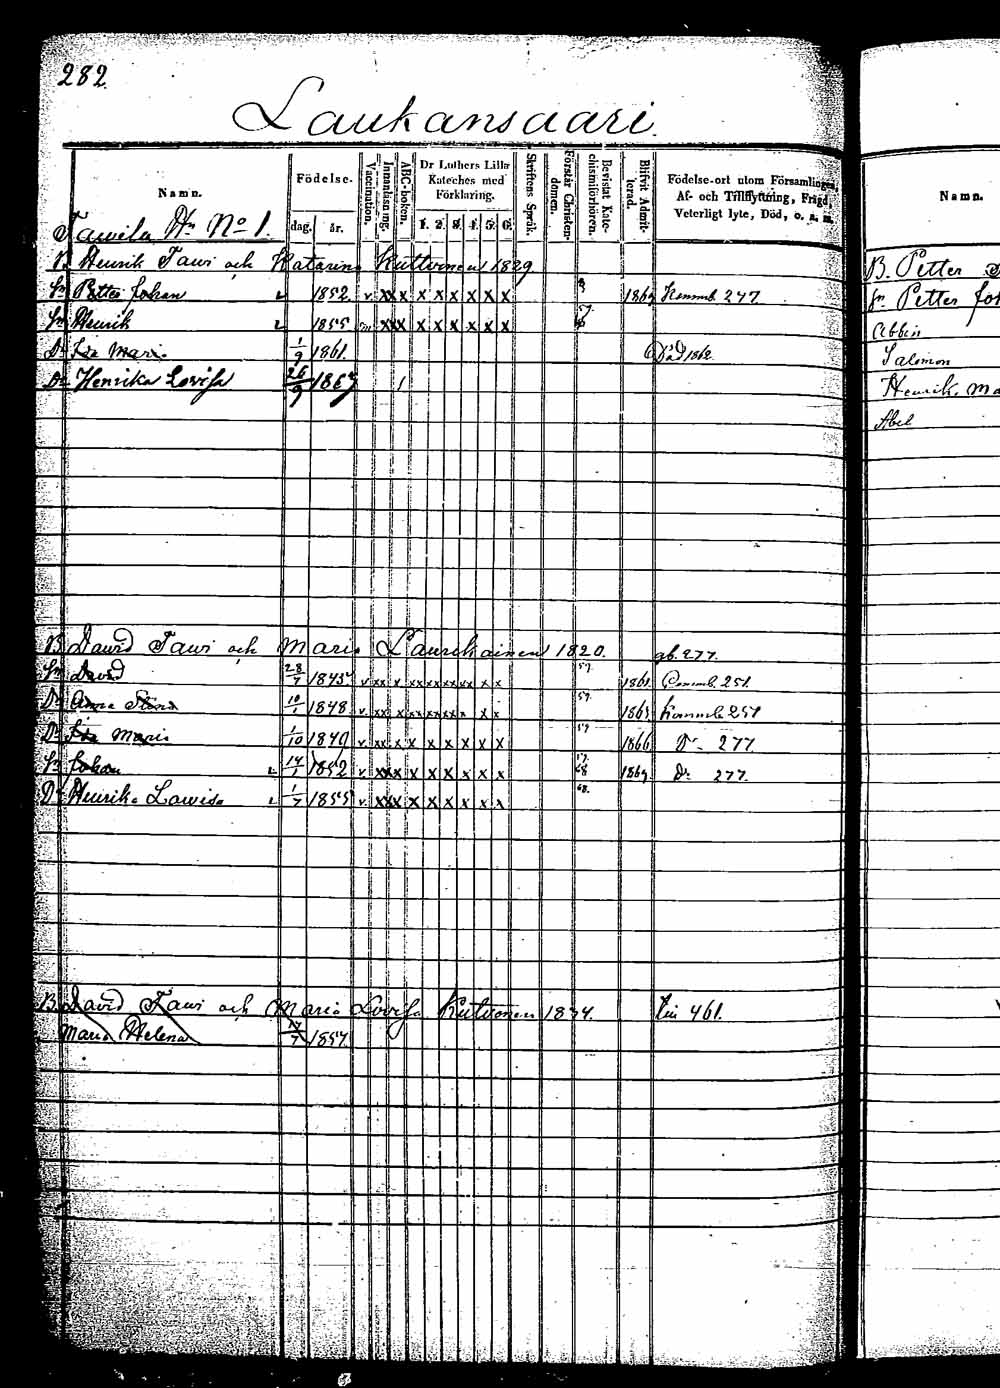 282.
Laukansaari.
Namn.
Födelse.
dag. år.
Vaccination.
Innanläsning.
ABC-boken.
Dr Luthers Lilla Kateches med Förklaring.
1. 2. 3. 4. 5. 6.
Skriftens Språk.
Förstår Christendomen.
Bevistat Katechismiförhören.
Blifvit Admitterad.
Födelse-ort utom Församlingen,
Af- och Tillflyttning, Frägd,
Veterligt lyte, Död, o. s. v.
Namn.
Tawila No 1.
B. Henrik Tawi och Katarina Kuttvonen 1829.
Sn Petter Johan 1852. v x x x x x x x x x 1869 Kommb. 247.
Sn Henrik 1855 x x x x x x x x x 57.
Dr Lisa Maria 1/9 1861. Död 1862.
Dr Henrika Lovisa 26/9 1867
B. David Tawi och Maria Laurikainen 1820. gb. 277.
Sn David 28/7 1845 v x x x x x x x x x x 57. 1861 Commb. 251.
Dr Anna Stina 10/1 1848. v x x x x x x x x x x 57. 1865 Kommb 251
Dr Lisa Maria 1/10 1849 v x x x x x x x x x 57 1866 Dr 277
Sn Johan 14/1 1852 v x x x x x x x x x 57. 68 1869 Dr 277.
Dr Henrika Lawisa 1/7 1855 v x x x x x x x x x 68.
B. David Tawi och Maria Lovisa Kutvonen 1834. Sin 461.
Maria Helena 17/7 1857.
B. Petter
Sn Petter Joh
Abbin
Salomon
Henrik. Ma
Abel